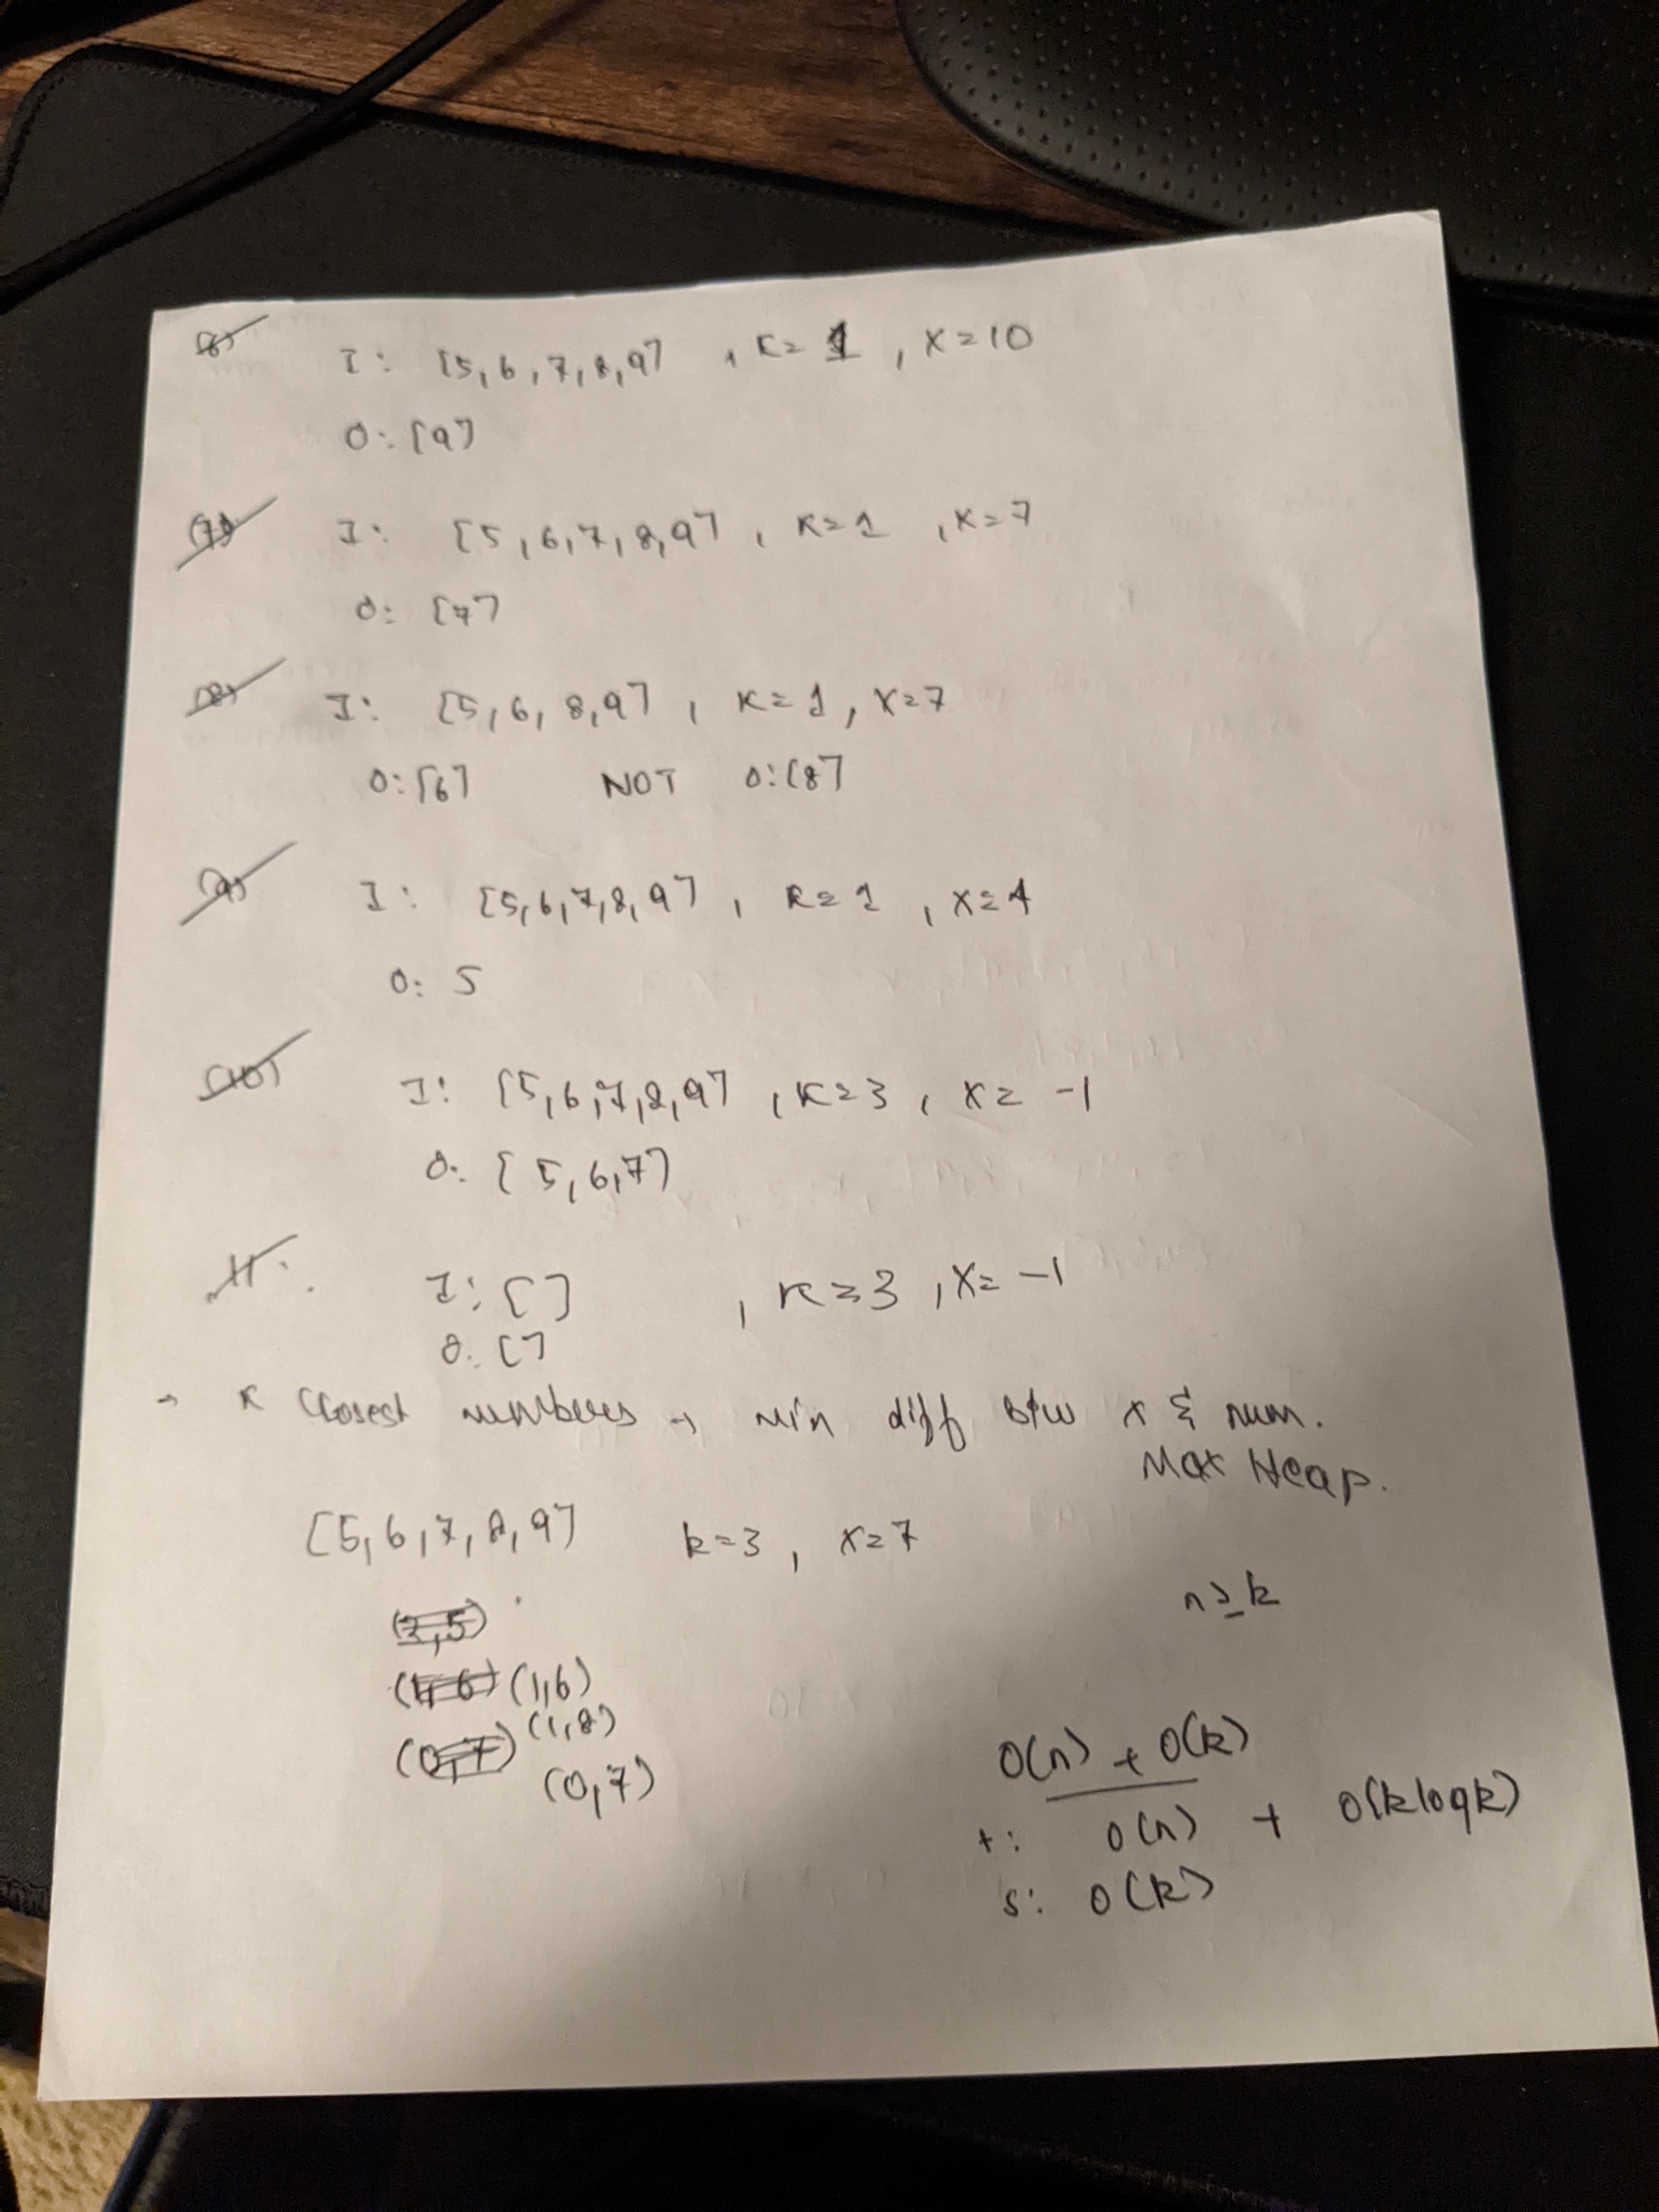 (6) I: [5,6,7,8,9] , K=1 , X=10
O: [9]
(7) I: [5,6,7,8,9] , K=1 , K=7
O: [7]
(8) I: [5,6,8,9] , K=1 , X=7
O: [6] NOT O: [8]
(9) I: [5,6,7,8,9] , K=1 , X=4
O: 5
(10) I: [5,6,7,8,9] , K=3 , X= -1
O: [5,6,7]
11. I: [ ] , K=3 , X= -1
O: [ ]
→ K Closest numbers → min diff b/w x & num.
Max Heap.
[5,6,7,8,9] k=3 , x=7
n≥k
(3,5)
(1,6) (1,6)
(1,8)
(0,7)
(0,7)
O(n) + O(k)
t: O(n) + O(klogk)
s: O(k)